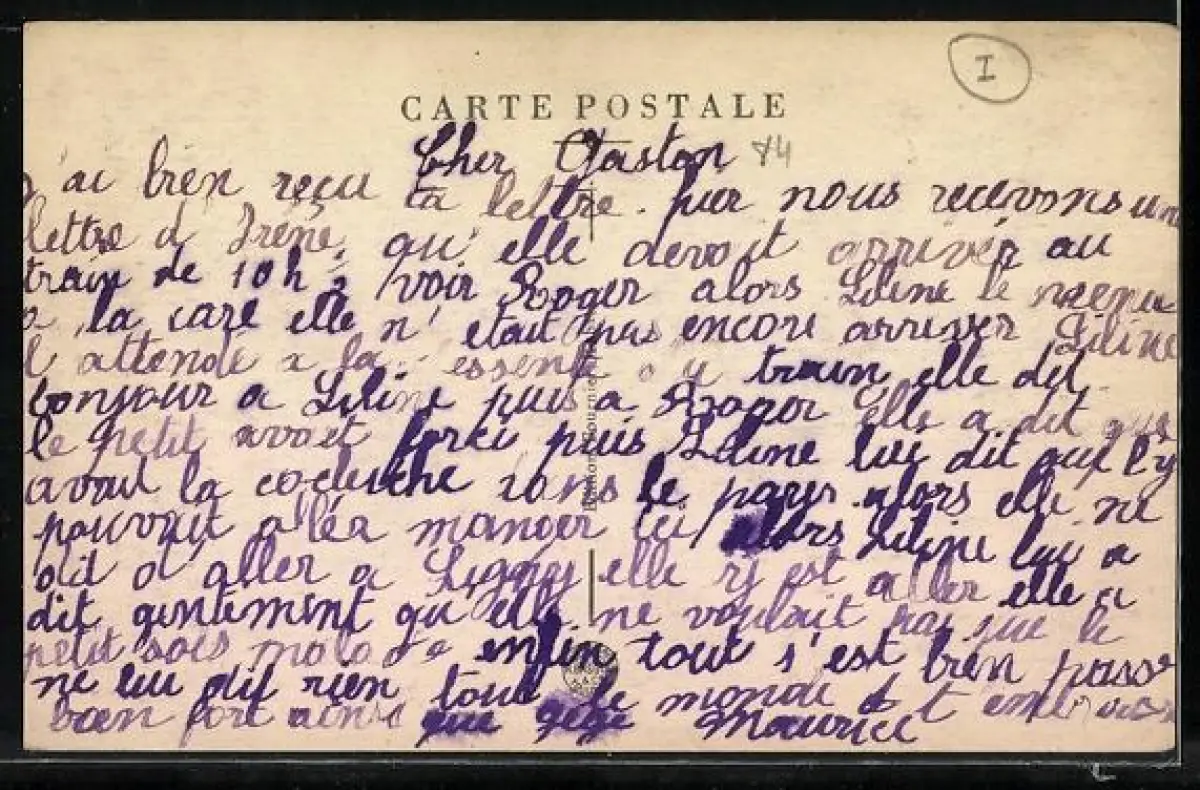 I
CARTE POSTALE
Cher Gaston 44
j'ai bien reçu ta lettre. puis nous recevons une
lettre d Irène, qu'elle devait arriver au
train de 10h, voir Roger alors Liline le
a la care elle n'etait pas encore arriver Liline
l'attende a la du train elle dit
bonjour a Liline puis a Roger elle a dit que
le petit avait forci puis Liline lui dit quil y
avait la cocluche dans le pays alors elle ne
pouvait aller manger ici alors Liline lui a
dit d'aller a Ligny elle ry est aller elle a
dit gentiment qu elle ne voulait pas que le
petit sois malade enfin tout s'est bien passe
ne lui dit rien tout le monde t embrasse
bien fort ainsi que gégé Maurice